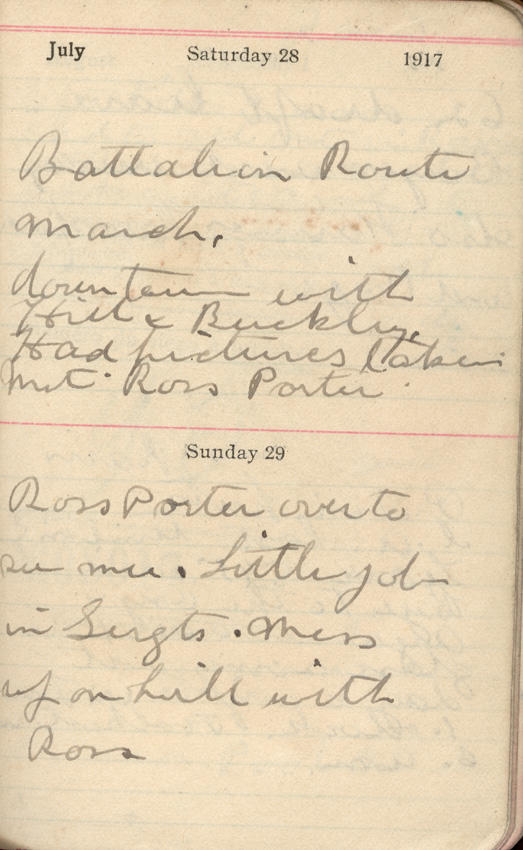 July Saturday 28 1917
Battalion Route
March.
down town with
Hill & Buckley.
Had pictures taken
met Ross Porter
Sunday 29
Ross Porter over to
see me. Little job
in Sergts. Mess
up on hill with
Ross